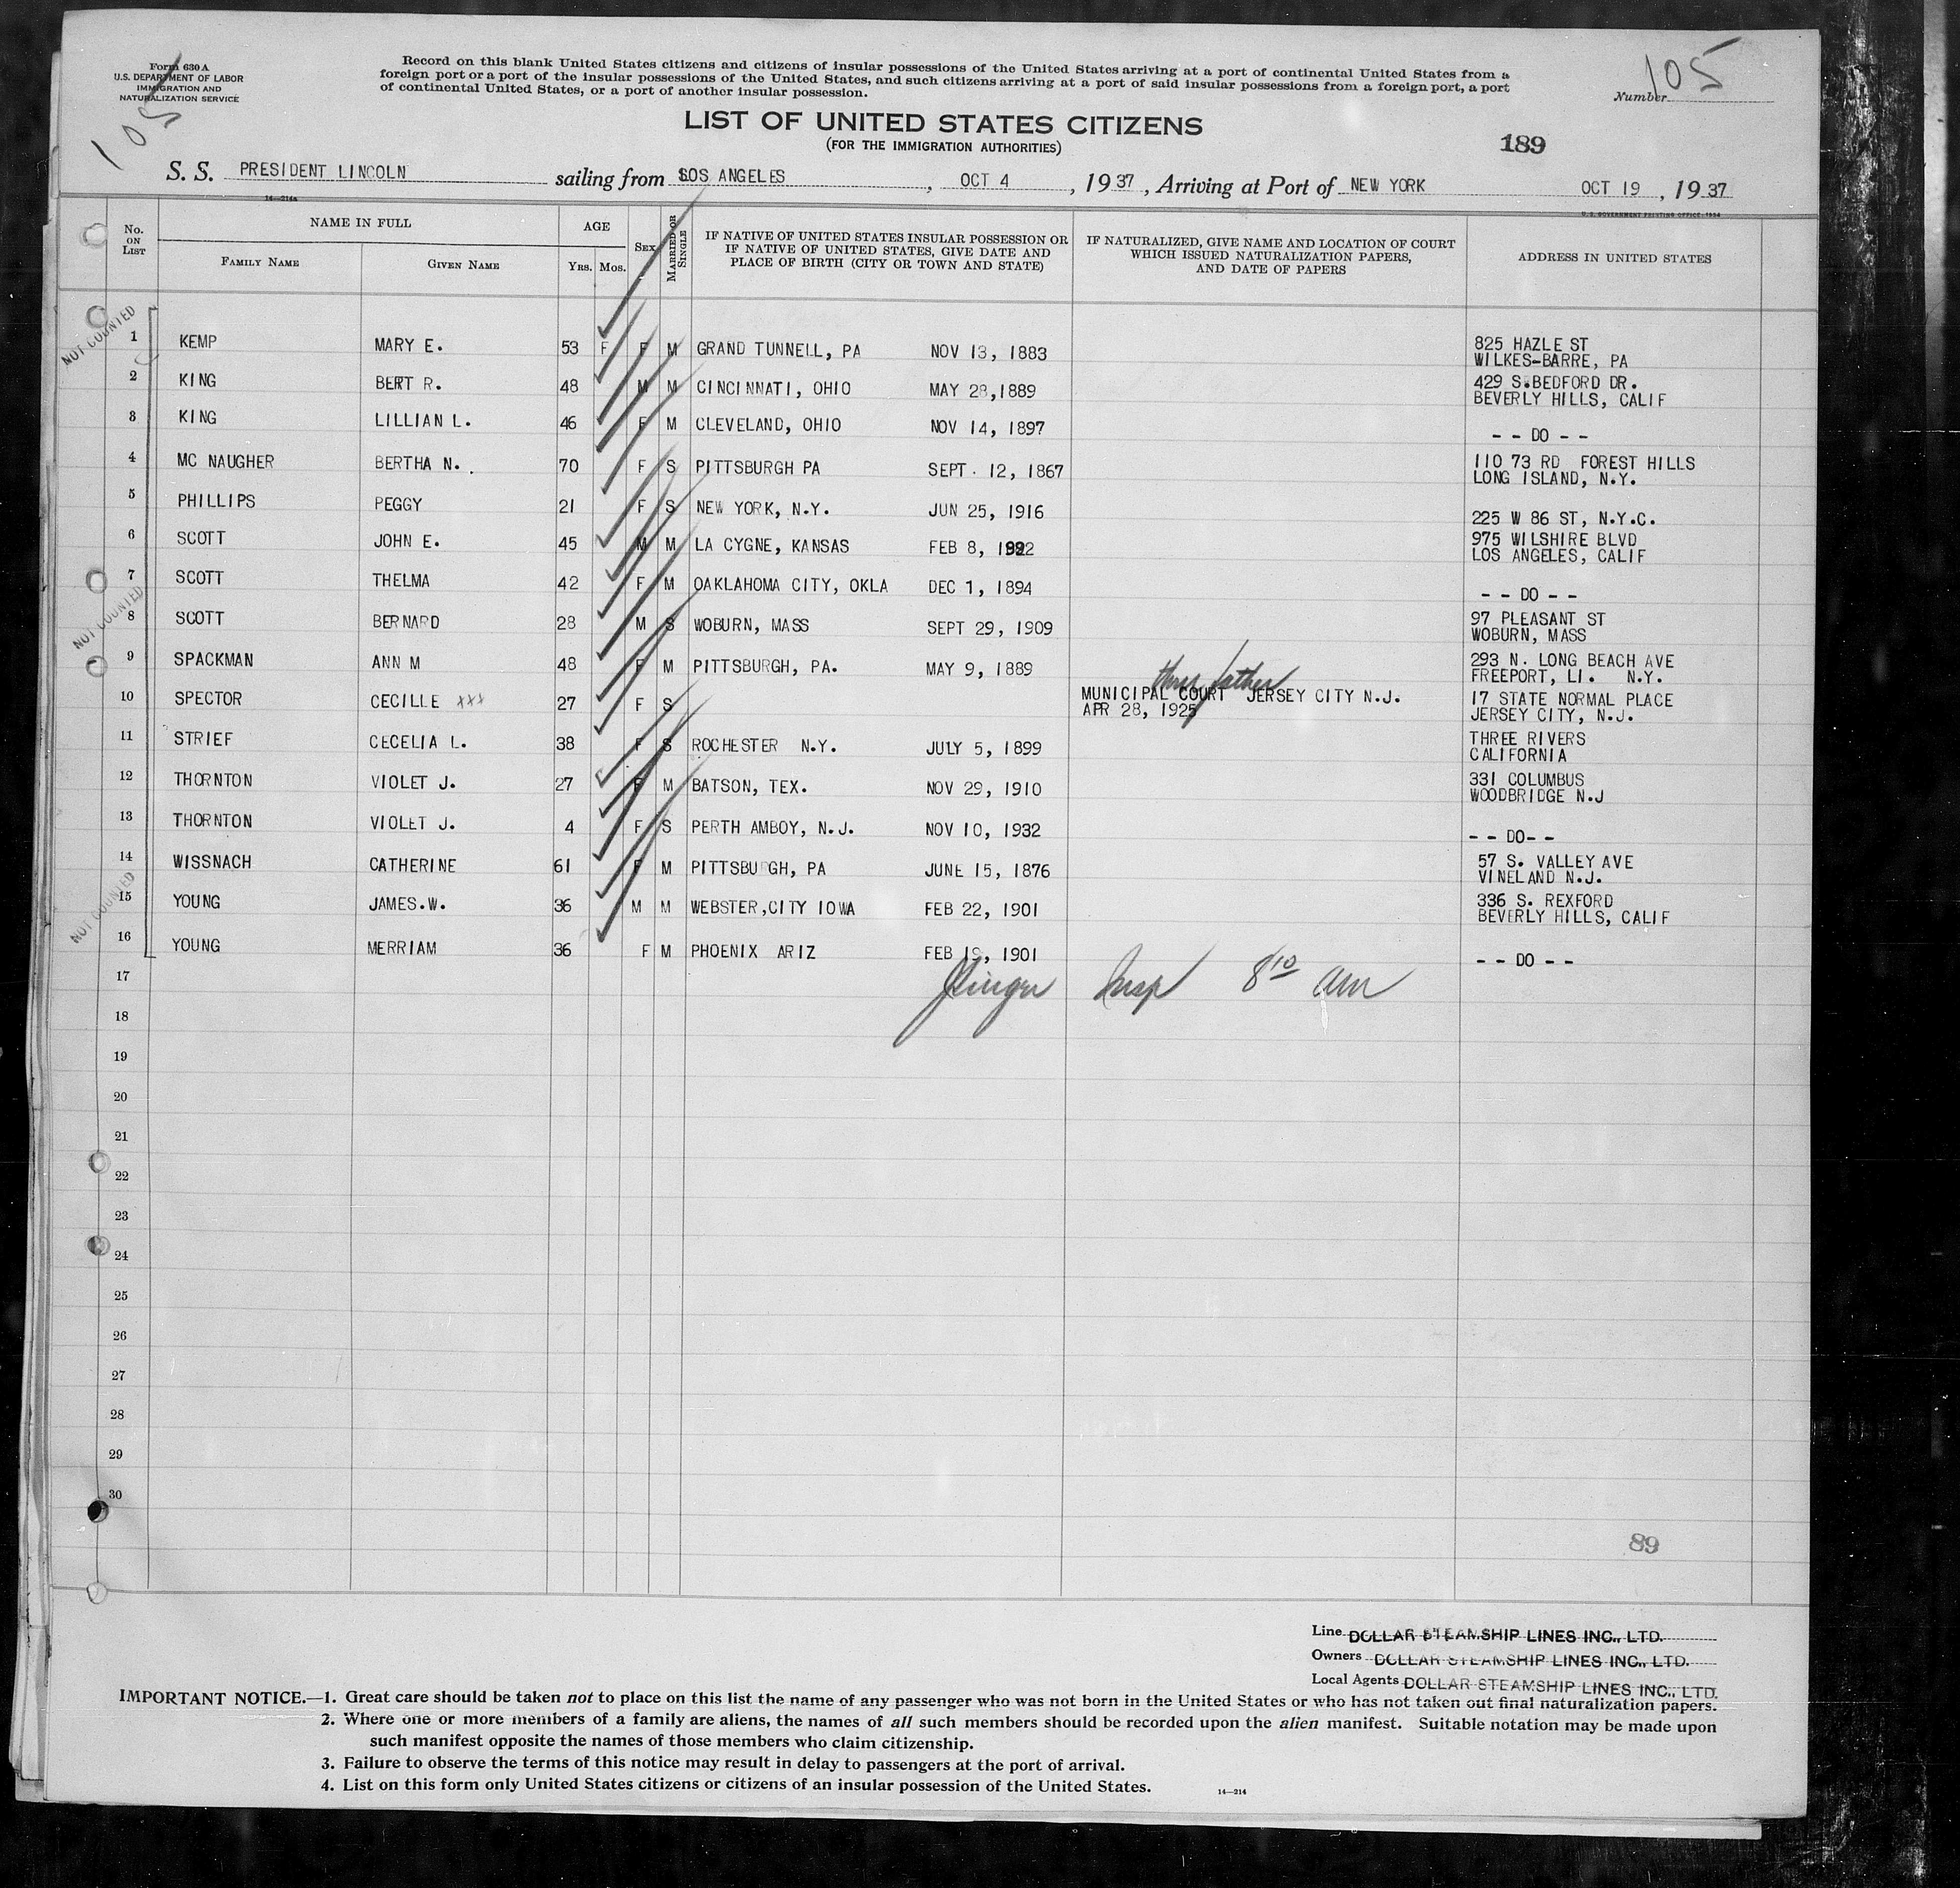 Form 630 A
U.S. DEPARTMENT OF LABOR
IMMIGRATION AND
NATURALIZATION SERVICE
105
Record on this blank United States citizens and citizens of insular possessions of the United States arriving at a port of continental United States from a
foreign port or a port of the insular possessions of the United States, and such citizens arriving at a port of said insular possessions from a foreign port, a port
of continental United States, or a port of another insular possession.
Number 105
LIST OF UNITED STATES CITIZENS
(FOR THE IMMIGRATION AUTHORITIES)
189
S. S. PRESIDENT LINCOLN sailing from LOS ANGELES, OCT 4, 1937, Arriving at Port of NEW YORK OCT 19, 1937
14—214a
U. S. GOVERNMENT PRINTING OFFICE: 1934
No. ON LIST
NAME IN FULL
FAMILY NAME
GIVEN NAME
AGE
YRS. MOS.
SEX
MARRIED OR SINGLE
IF NATIVE OF UNITED STATES INSULAR POSSESSION OR
IF NATIVE OF UNITED STATES, GIVE DATE AND
PLACE OF BIRTH (CITY OR TOWN AND STATE)
IF NATURALIZED, GIVE NAME AND LOCATION OF COURT
WHICH ISSUED NATURALIZATION PAPERS,
AND DATE OF PAPERS
ADDRESS IN UNITED STATES
NOT COUNTED
1 KEMP MARY E. 53 F F M GRAND TUNNELL, PA NOV 13, 1883 825 HAZLE ST
WILKES-BARRE, PA
2 KING BERT R. 48 M M CINCINNATI, OHIO MAY 28,1889 429 S.BEDFORD DR.
BEVERLY HILLS, CALIF
3 KING LILLIAN L. 46 F M CLEVELAND, OHIO NOV 14, 1897 - - DO - -
4 MC NAUGHER BERTHA N. 70 F S PITTSBURGH PA SEPT. 12, 1867 110 73 RD FOREST HILLS
LONG ISLAND, N.Y.
5 PHILLIPS PEGGY 21 F S NEW YORK, N.Y. JUN 25, 1916 225 W 86 ST, N.Y.C.
6 SCOTT JOHN E. 45 M M LA CYGNE, KANSAS FEB 8, 1892 975 WILSHIRE BLVD
LOS ANGELES, CALIF
7 SCOTT THELMA 42 F M OAKLAHOMA CITY, OKLA DEC 1, 1894 - - DO - -
NOT COUNTED
8 SCOTT BERNARD 28 M S WOBURN, MASS SEPT 29, 1909 97 PLEASANT ST
WOBURN, MASS
9 SPACKMAN ANN M 48 F M PITTSBURGH, PA. MAY 9, 1889 293 N. LONG BEACH AVE
FREEPORT, LI. N.Y.
thru father
10 SPECTOR CECILLE xxx 27 F S MUNICIPAL COURT JERSEY CITY N.J. 17 STATE NORMAL PLACE
APR 28, 1925 JERSEY CITY, N.J.
11 STRIEF CECELIA L. 38 F S ROCHESTER N.Y. JULY 5, 1899 THREE RIVERS
CALIFORNIA
12 THORNTON VIOLET J. 27 F M BATSON, TEX. NOV 29, 1910 331 COLUMBUS
WOODBRIDGE N.J
13 THORNTON VIOLET J. 4 F S PERTH AMBOY, N.J. NOV 10, 1932 - - DO- -
14 WISSNACH CATHERINE 61 F M PITTSBURGH, PA JUNE 15, 1876 57 S. VALLEY AVE
VINELAND N.J.
NOT COUNTED
15 YOUNG JAMES.W. 36 M M WEBSTER,CITY IOWA FEB 22, 1901 336 S. REXFORD
BEVERLY HILLS, CALIF
16 YOUNG MERRIAM 36 F M PHOENIX ARIZ FEB 19, 1901 - - DO - -
17 Insp 8 10 am
18
19
20
21
22
23
24
25
26
27
28
29
30
89
Line DOLLAR STEAMSHIP LINES INC., LTD.
Owners DOLLAR STEAMSHIP LINES INC., LTD.
Local Agents DOLLAR STEAMSHIP LINES INC., LTD.
IMPORTANT NOTICE.—1. Great care should be taken not to place on this list the name of any passenger who was not born in the United States or who has not taken out final naturalization papers.
2. Where one or more members of a family are aliens, the names of all such members should be recorded upon the alien manifest. Suitable notation may be made upon
such manifest opposite the names of those members who claim citizenship.
3. Failure to observe the terms of this notice may result in delay to passengers at the port of arrival.
4. List on this form only United States citizens or citizens of an insular possession of the United States.
14—214